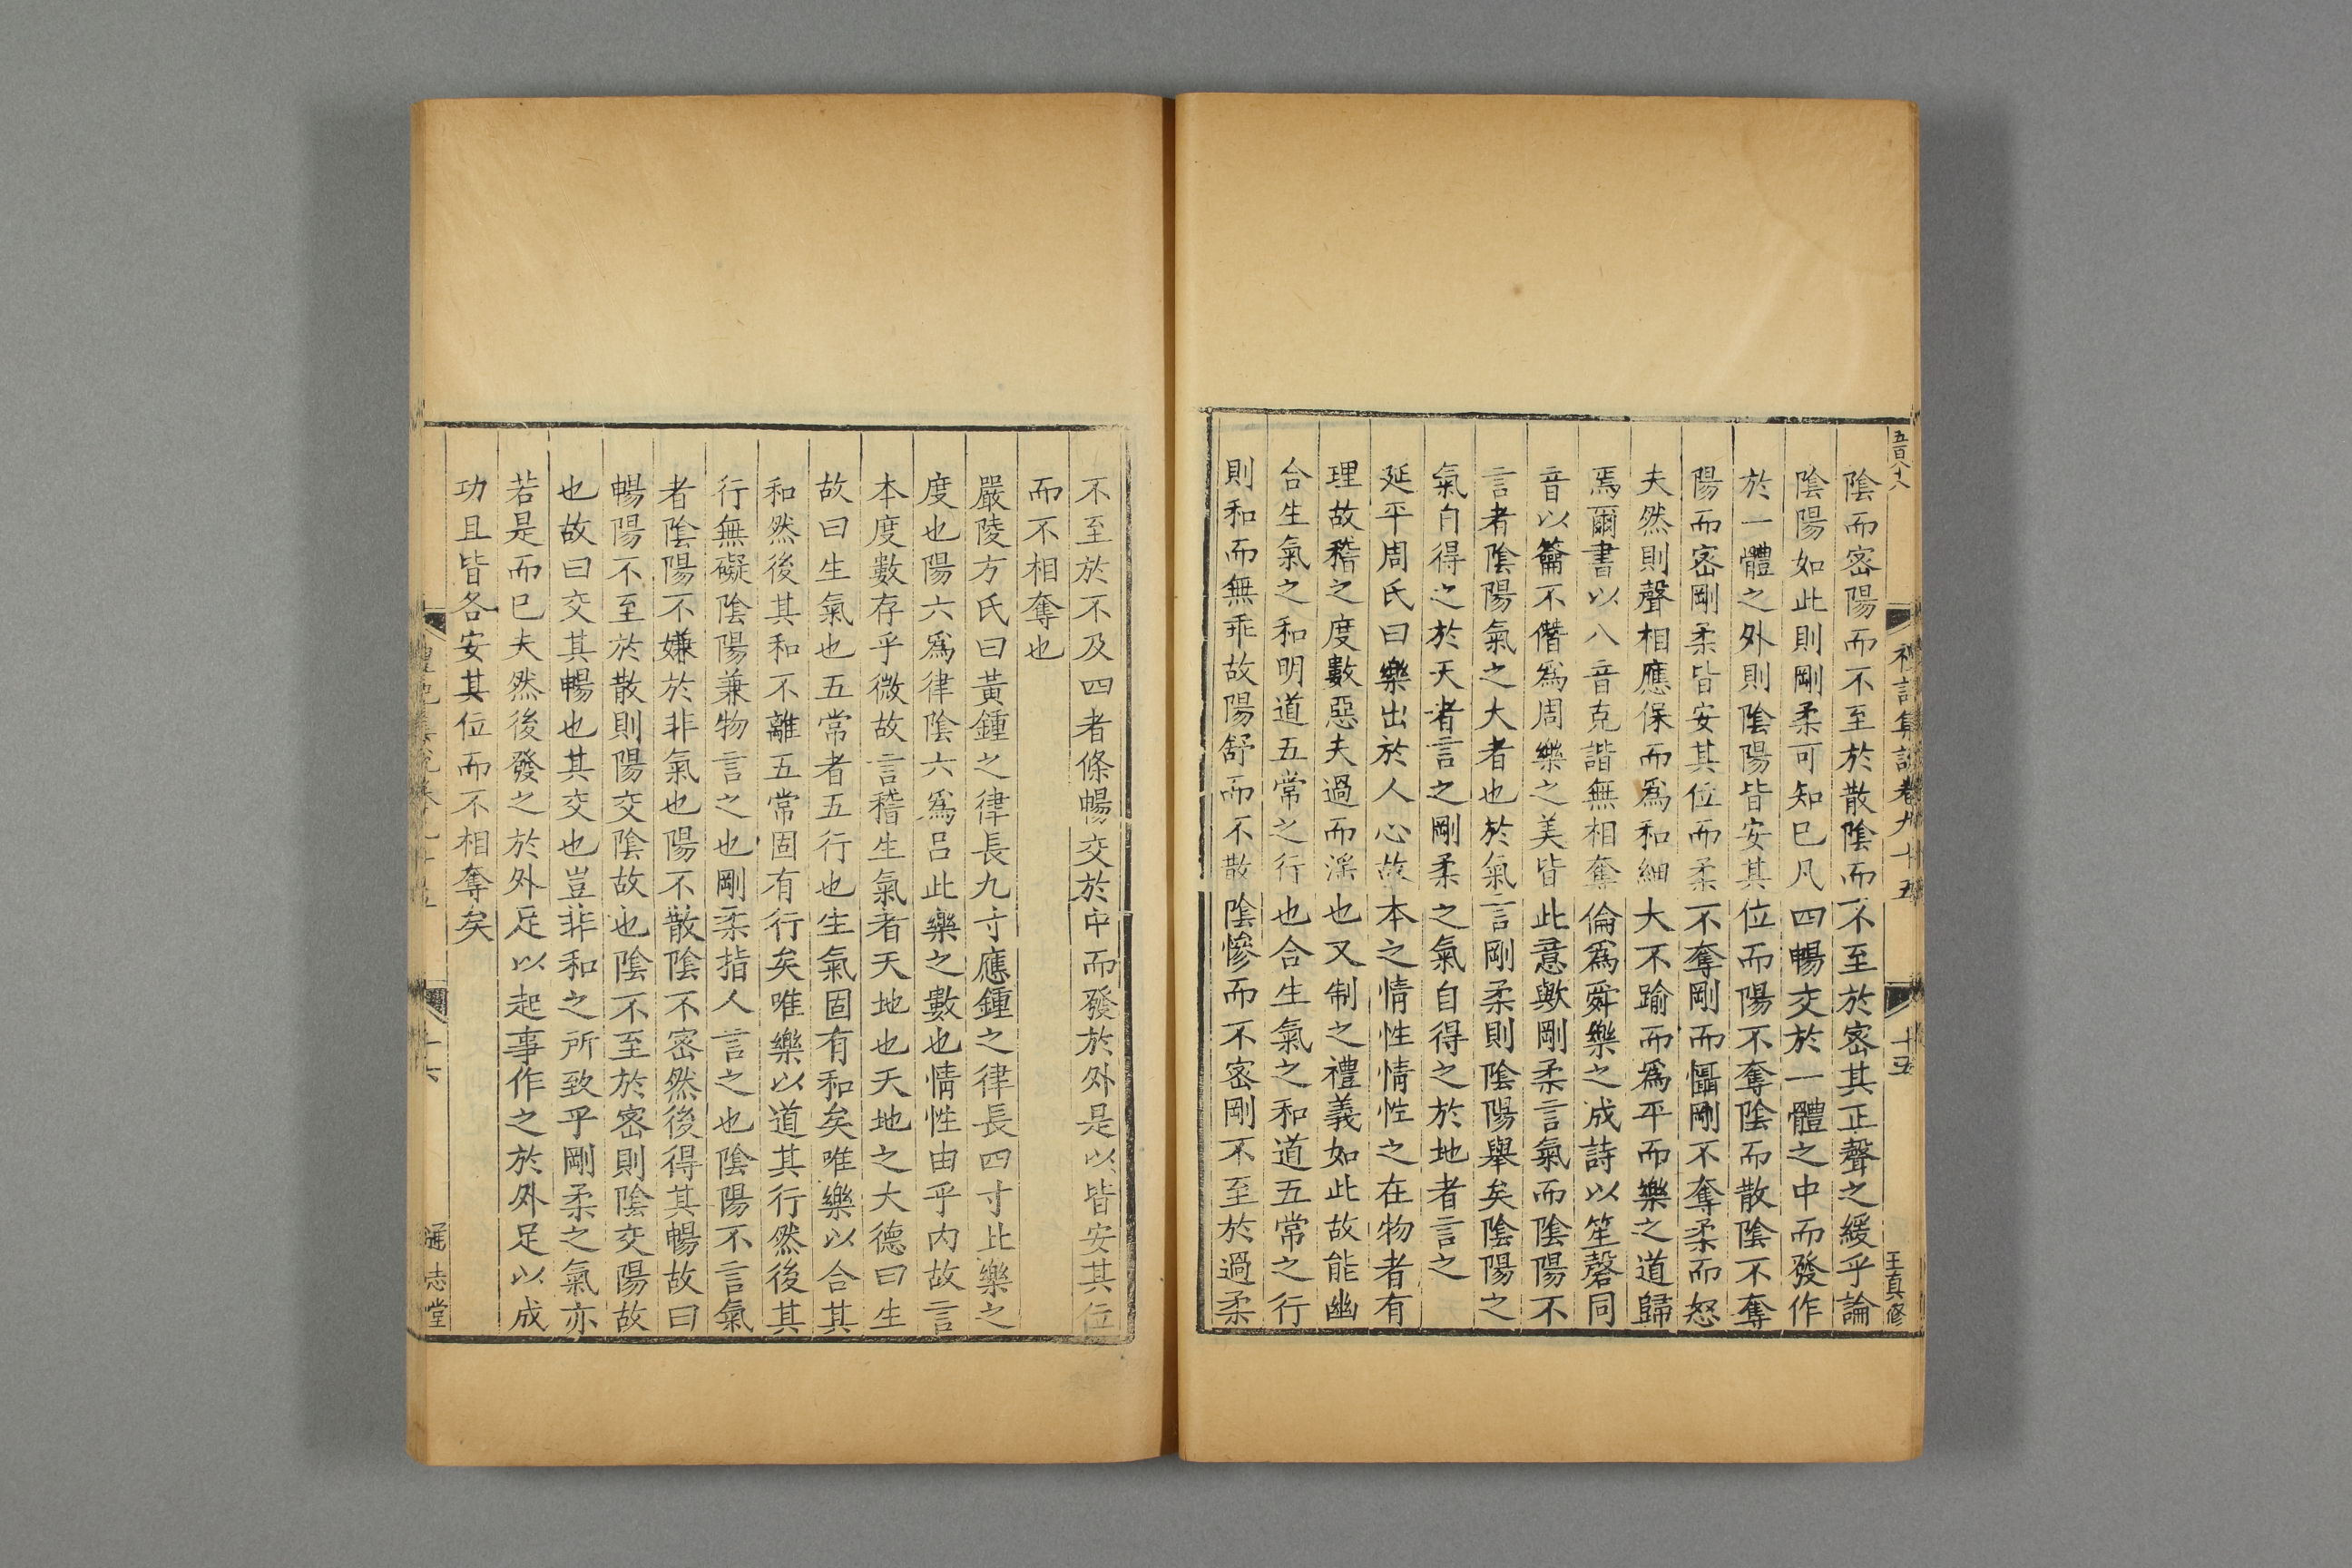 五百八十八
禮記集說卷九十五
十五
王真修
陰而密陽而不至於散陰而不至於密其正聲之緩乎論
陰陽如此則剛柔可知已凡四暢交於一體之中而發作
於一體之外則陰陽皆安其位而陽不奪陰而散陰不奪
陽而密剛柔皆安其位而柔不奪剛而懾剛不奪柔而怒
夫然則聲相應保而為和細大不踰而為平而樂之道歸
焉爾書以八音克諧無相奪倫為舜樂之成詩以笙磬同
音以籥不僭為周樂之美皆此意歟剛柔言氣而陰陽不
言者陰陽氣之大者也於氣言剛柔則陰陽舉矣陰陽之
氣自得之於天者言之剛柔之氣自得之於地者言之
延平周氏曰樂出於人心故本之情性情性之在物者有
理故稽之度數惡夫過而淫也又制之禮義如此故能幽
合生氣之和明道五常之行也合生氣之和道五常之行
則和而無乖故陽舒而不散陰慘而不密剛不至於過柔
不至於不及四者條暢交於中而發於外是以皆安其位
而不相奪也
嚴陵方氏曰黃鍾之律長九寸應鍾之律長四寸此樂之
度也陽六爲律陰六爲呂此樂之數也情性由乎內故言
本度數存乎微故言稽生氣者天地也天地之大德曰生
故曰生氣也五常者五行也生氣固有和矣唯樂以合其
和然後其和不離五常固有行矣唯樂以道其行然後其
行無礙陰陽兼物言之也剛柔指人言之也陰陽不言氣
者陰陽不嫌於非氣也陽不散陰不密然後得其暢故曰
暢陽不至於散則陽交陰故也陰不至於密則陰交陽故
也故曰交其暢也其交也豈非和之所致乎剛柔之氣亦
若是而已夫然後發之於外足以起事作之於外足以成
功且皆各安其位而不相奪矣
禮記集說卷九十五
十六
通志堂